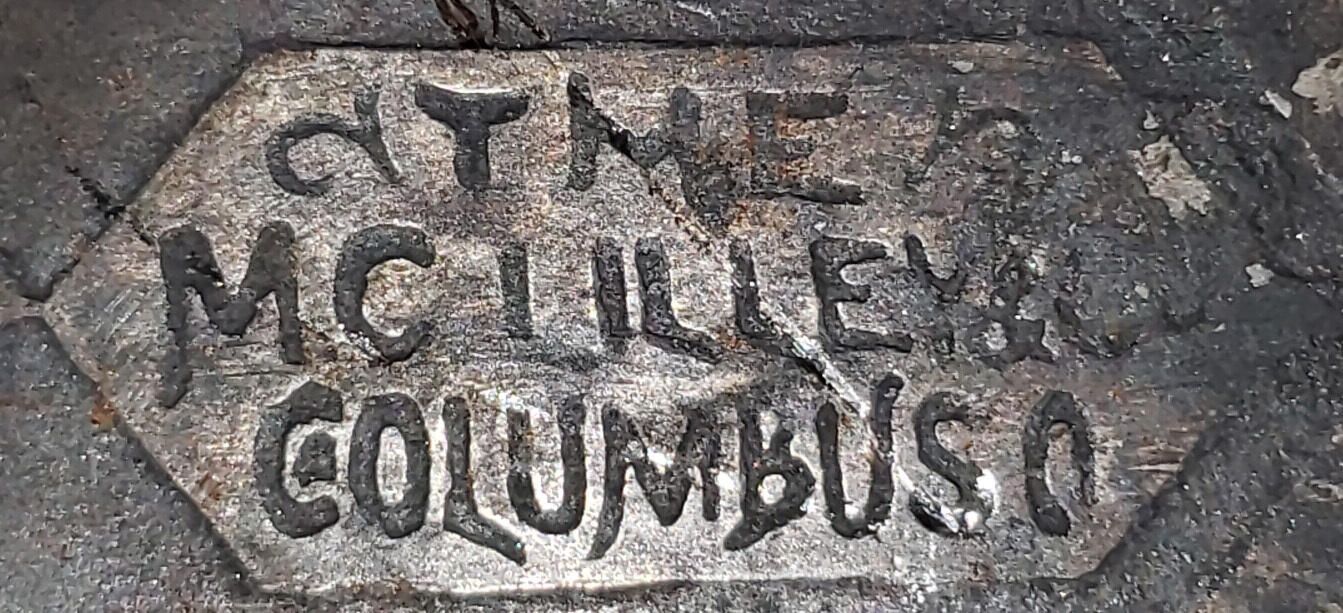 THE
MC LILLEY & CO
COLUMBUS O